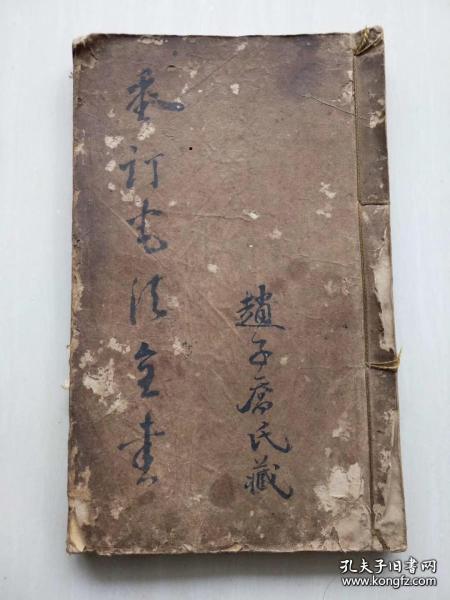 重訂書法全書
趙子喬氏藏
孔夫子旧书网
www.kongfz.com